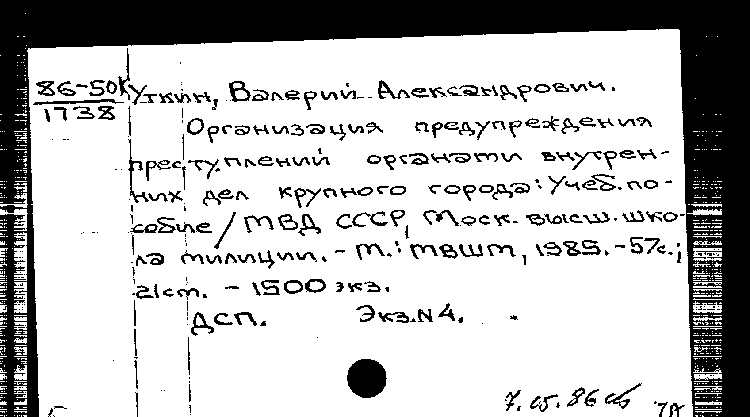 86-50К Уткин, Валерий Александрович.
1738
Организация предупреждения
преступлений органами внутрен-
них дел крупного города: Учеб. по-
собие / МВД СССР, Моск. высш. шко-
ла милиции. - М.: МВШМ, 1985. - 57с.;
21см. - 1500 экз.
ДСП. Экз.N4.